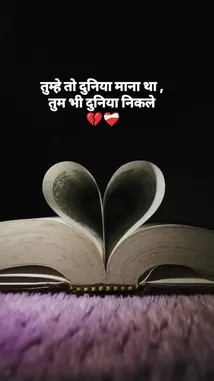 तुम्हे तो दुनिया माना था ,
तुम भी दुनिया निकले
💔❤️‍🩹